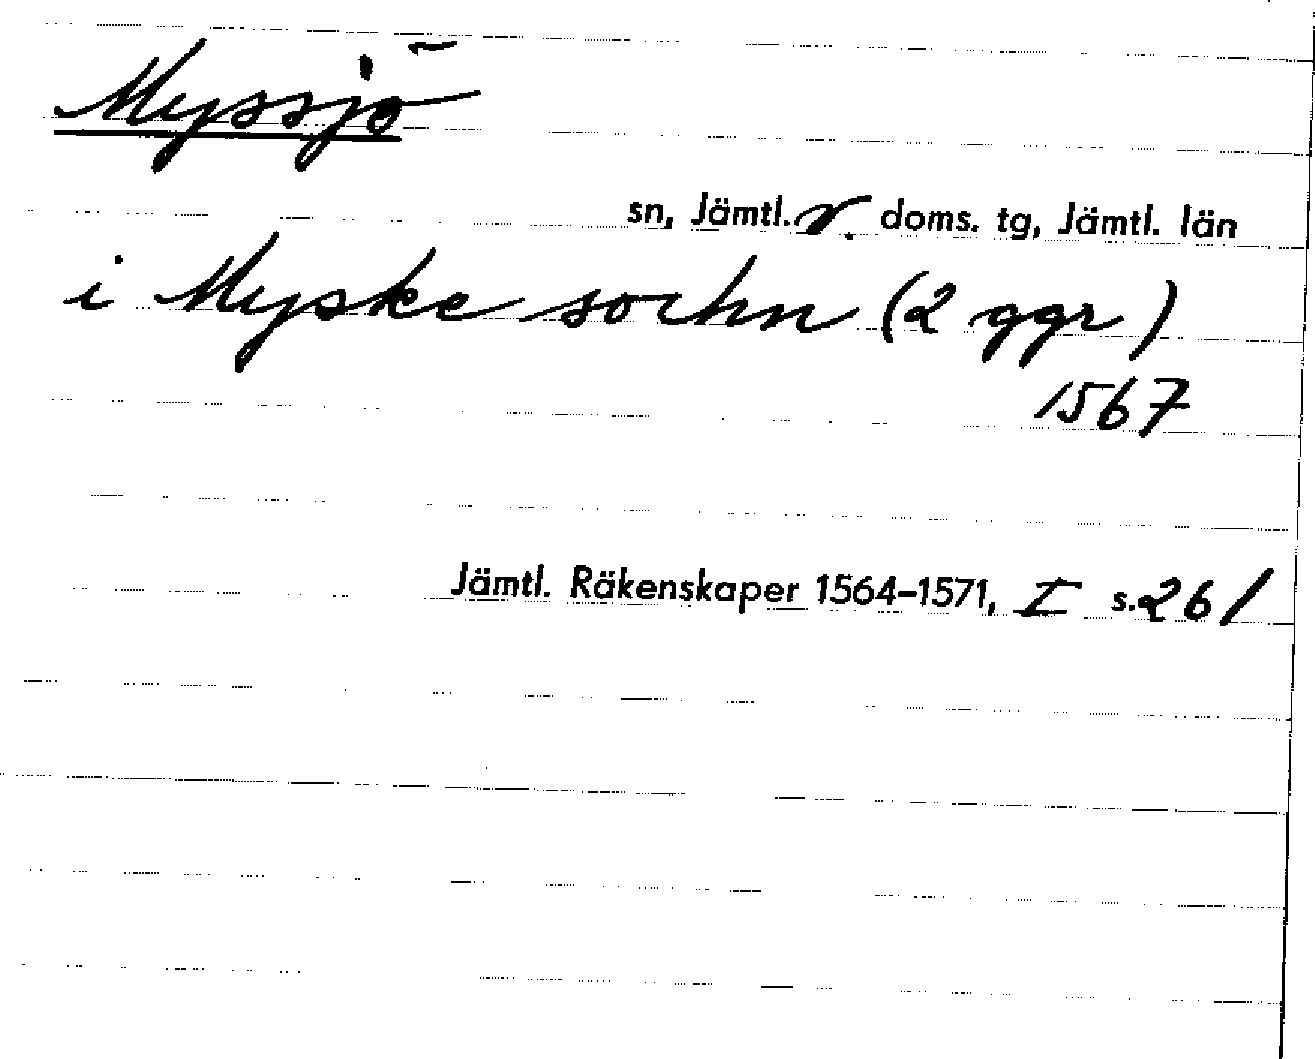 Myssjö
sn, Jämtl. v. doms. tg, Jämtl. län
i Myske sochn (2 ggr)
1567
Jämtl. Räkenskaper 1564–1571, I s. 261